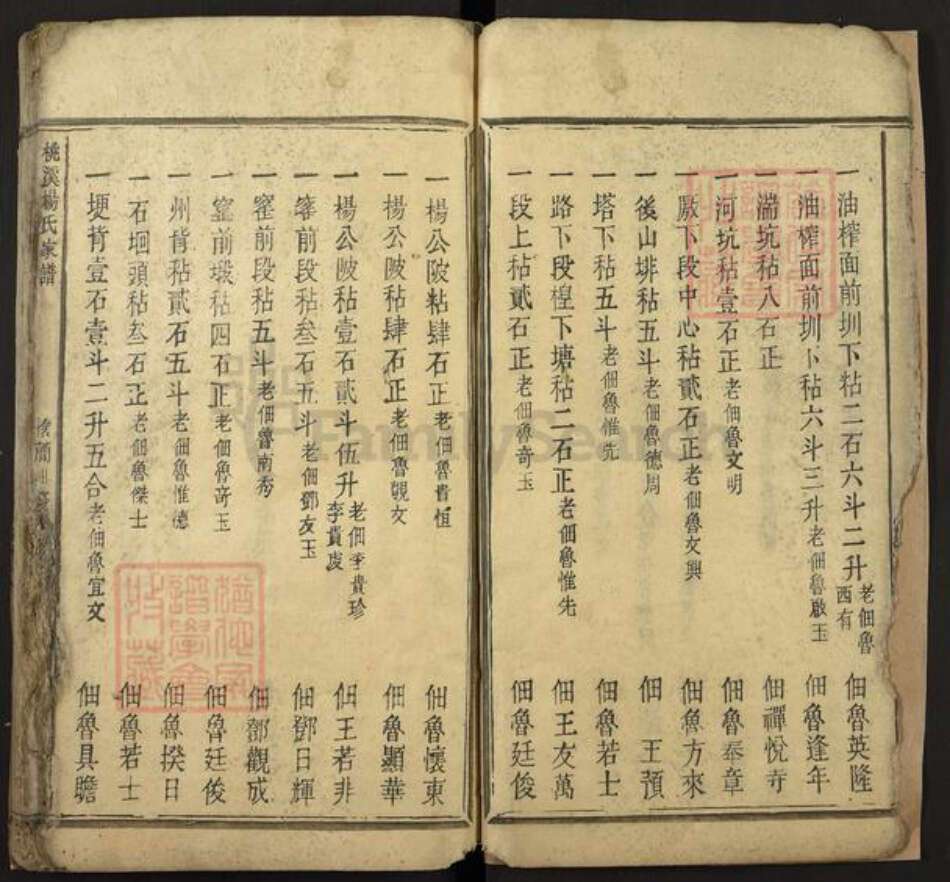 一油榨面前圳下秥二石六斗二升老佃魯西有 佃魯英隆
一油榨面前圳卜秥六斗三升老佃魯啟玉 佃魯逢年
一湍坑秥八石正 佃禪悅寺
一河坑秥壹石正老佃魯文明 佃魯奉章
一厫下段中心秥貳石正老佃魯文興 佃魯方來
一後山埱秥五斗老佃魯德周 佃王預
一塔下秥五斗老佃魯惟先 佃魯若士
一路下段楻下塘秥二石正老佃魯惟先 佃王友萬
一段上秥貳石正老佃魯奇玉 佃魯廷俊
一楊公陂粘肆石正老佃魯貴恒 佃魯懷東
一楊公陂秥肆石正老佃魯覞文 佃魯顯華
一楊公陂秥壹石貳斗伍升老佃李貴珍李貴虔 佃王若非
一窰前段秥叁石五斗老佃鄧友玉 佃鄧日輝
一窰前段秥五斗老佃魯南秀 佃鄧觀成
一窰前塅秥四石正老佃魯奇玉 佃魯廷俊
一州背秥貳石五斗老佃魯惟德 佃魯揆日
一石堌頭秥叁石正老佃魯傑士 佃魯若士
一埂背壹石壹斗二升五合老佃魯宜文 佃魯具瞻
桃溪楊氏家譜